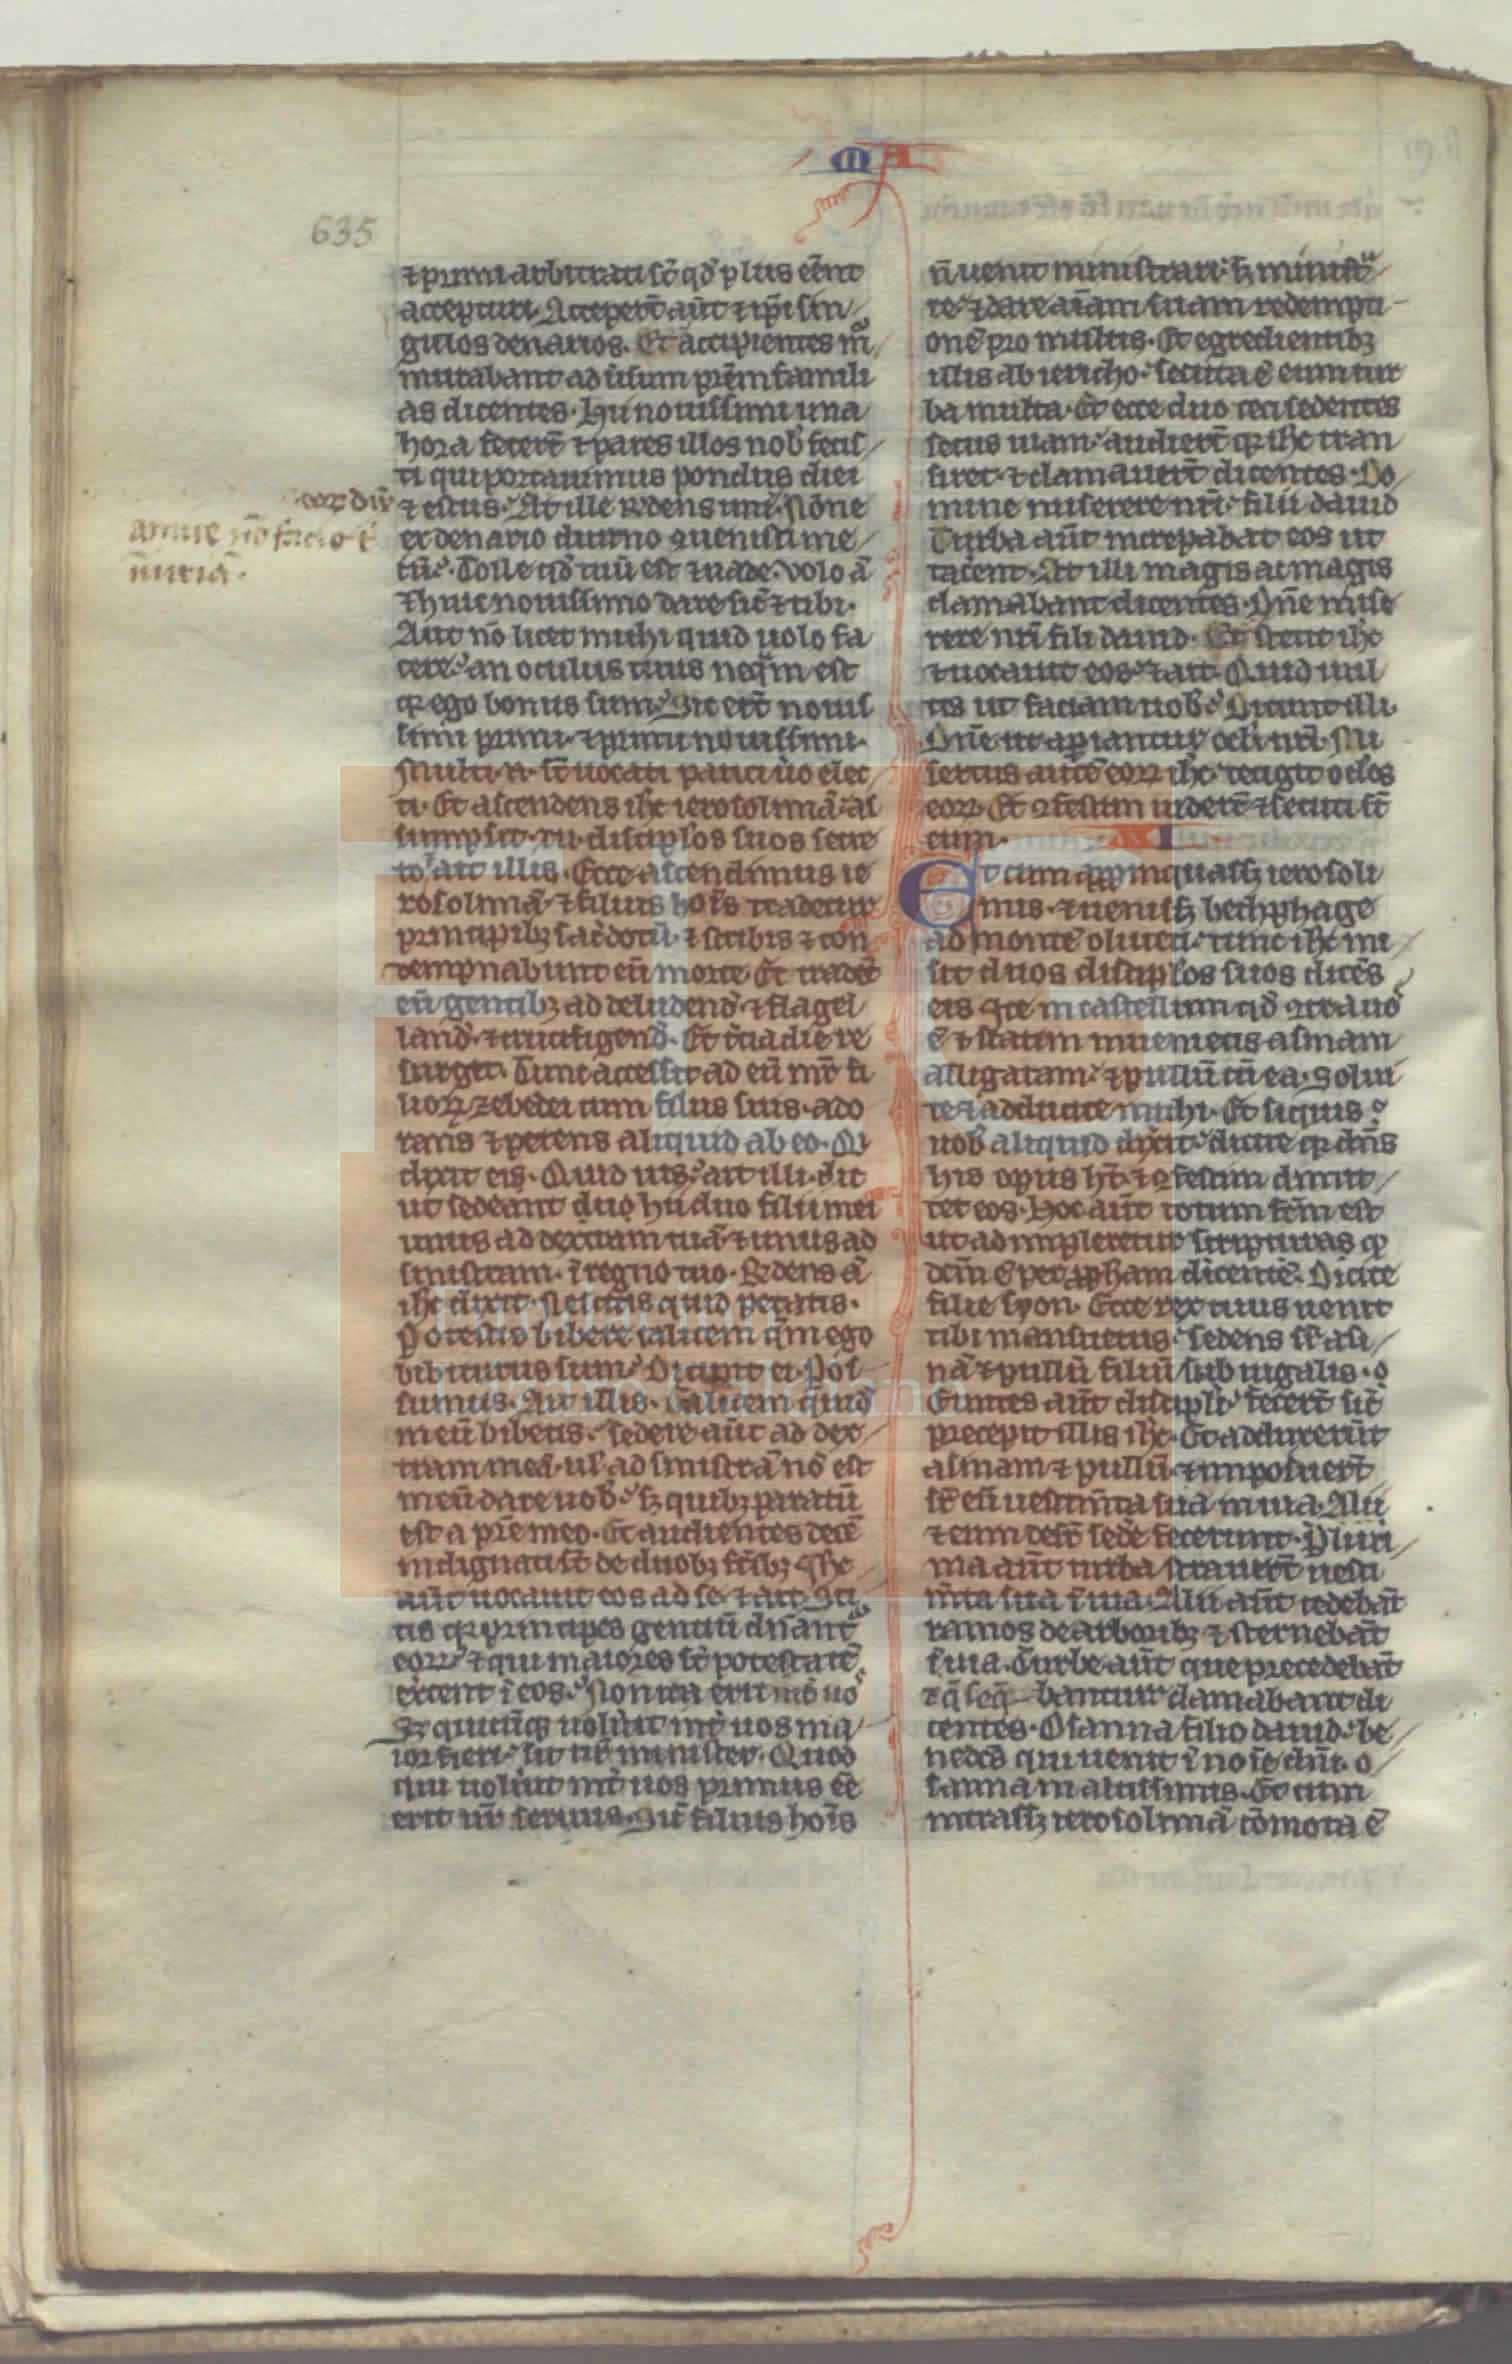 MA
635
⁊ primi arbitrati st̄ qd̓ plus eēnt
accepturi. Acceper̄t aūt ⁊ ip̄i sin
gulos denarios. Et accipientes m̄
murabant adu̓sum pr̄em famili
as dicentes. Hii nouissimi una
hora fecer̄t ⁊ pares illos nob̓ fecis
ti qui portauimus pondus diei
⁊ estus. At ille r̄dens uni. Nōne
ex denario diurno ꝯuenisti me
cū. Tolle qd̓ tuū est ⁊ uade. volo ā
⁊ huic nouissimo dare sic̄ ⁊ tibi.
Aut nō licet michi quid uolo fa
cere. an oculus tuus neq̄m est
qr ego bonus sum. Sic er̄t nouis
simi primi. ⁊ primi nouissimi.
Multi .n. st̄ uocati pauci uo̓ elec
ti. Et ascendens ih̄c ierosolimā. as
sumpsit .xii. discip̄los suos secre
to. ait illis. Ecce ascendimus ie
rosolimā. ⁊ filius hoīs tradetur
principibꝫ sac̓dotū. ⁊ scribis ⁊ con
dempnabunt eū morte. Et tradēt
eū gentibꝫ ad deludend̓. ⁊ flagel
land̓. ⁊ crucifigend̓. Et t̓cia die re
surget. Tunc accessit ad eū mr̄ fi
liorꝝ zebedei cum filiis suis. ado
rans ⁊ petens aliquid ab eo. Qi
dixit eis. Quid uis. ait illi. dic
ut sedeant duo hii duo filii mei
unus ad dexteram tuā. ⁊ unus ad
sinistram. ī regno tuo. R̄dens ā
ih̄c dixit. Nescitis quid petatis.
Potestis bibere calicem q̄m ego
bibiturus sum. Dicunt ei. Pos
sumus. Ait illis. Calicem quid̓
meū bibetis. sedere aūt ad dex
tram meā. ul̓ ad sinistrā nō est
meū dare uob̓. sꝫ quibꝫ paratū
est a pr̄e meo. Et audientes decē
indignati st̄ de duobꝫ fr̄ibꝫ. ih̄c
aūt uocauit eos ad se. ⁊ ait. Sci
tis qr principes gentiū dn̄ant̄
eorꝝ. ⁊ qui maiores st̄ potestatē
exercent ī eos. Non ita erit int̓ uo
Sꝫ quicūqꝫ uolu̓it int̓ uos ma
ior fieri. sit ur̄ minister. Quod
qui uolu̓it int̓ uos primus eē
erit ur̄ seruus. Sic̄ filius hoīs
amice nō facio t̓
iniuriā.
n̄ uenit ministrari. sꝫ minist
re. ⁊ dare aīam suam redempti
onē pro multis. Et egredientibꝫ
illis ab iericho. secuta ē eum tur
ba multa. Et ecce duo ceci sedentes
secus uiam. audier̄t qr ih̄c tran
siret. ⁊ clamauer̄t dicentes. Do
mine miserere nr̄i. filii dauid
Turba aūt increpabat eos ut
tacent. At illi magis ac magis
clamabant dicentes. Dn̄e mise
rere nr̄i fili dauid. Et stetit ih̄c
⁊ uocauit eos. ⁊ ait. Quid uul
tis ut faciam uob̓. Dicunt illi.
Dn̄e ut apiantur oc̄li nr̄i. Mi
sertus autē eorꝝ ih̄c. tetigit oc̄los
eorꝝ. Et ꝯfestim uider̄t ⁊ secuti st̄
eum.
XXI
Et cum appinquassꝫ ierosoli
mis. ⁊ uenissꝫ bethphage
ad montē oliueti. tunc ih̄c mi
sit duos discip̄los suos dicēs
eis. Ite in castellum qd̓ ꝯtra uo
ē. ⁊ statim inuenietis asinam
alligatam. ⁊ pullū cū ea. Solui
te. ⁊ adducite michi. Et siquis
uob̓ aliquid dixit. dicite qr dn̄s
his opus h̄t. ⁊ ꝯfestim dimit
tet eos. Hoc aūt totum fc̄m est
ut adimpleretur scripturas q̓
dc̄m ē per ꝓpham dicentē. Dicite
filie syon. Ecce rex tuus uenit
tibi mansuetus. sedens sr̄ asi
nā ⁊ pullū filiū subiugalis.
Euntes aūt discipli. fecer̄t sic̄
precepit illis ih̄c. Et adduxerūt
asinam ⁊ pullū. ⁊ imposuer̄t
sr̄ eū uestimta sua in uia. Alii
⁊ eum desr̄ sede̓ fecerunt. Pluri
ma aūt turba strauer̄t uesti
mta sua ī uia. Alii aūt cedebāt
ramos de arboribꝫ ⁊ sternebāt
ī uia. Turbe aūt que precedebāt
⁊ q̄ seq̄ bantur clamabant di
centes. Osanna filio dauid. be
nedc̄s qui uenit ī noīe dn̄i. o
sanna in altissimis. Et cum
intrassꝫ ierosolimā cōmota ē